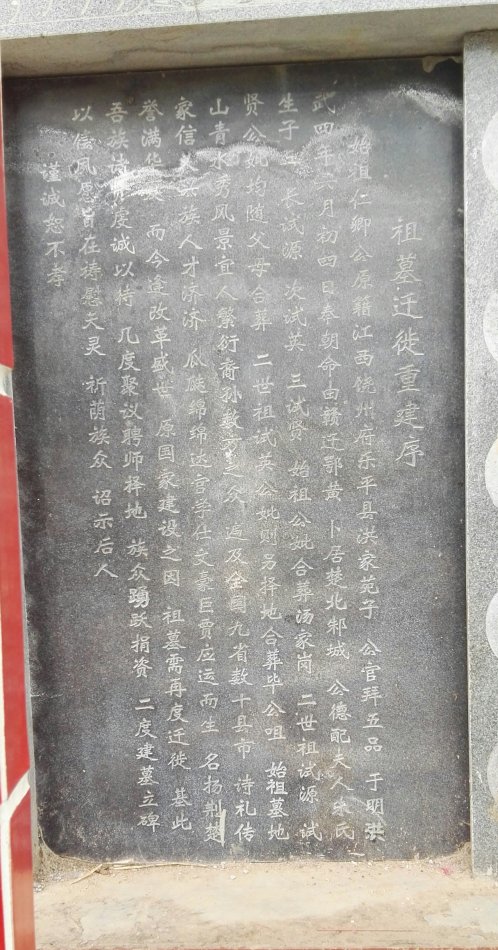 祖墓迁徙重建序
始祖仁卿公原籍江西饶州府乐平县洪家苑子 公官拜五品 于明洪
武四年六月初四日奉朝命由赣迁鄂黄 卜居楚北邾城 公德配夫人朱氏
生子三 长试源 次试英 三试贤 始祖公妣合葬汤家岗 二世祖试源 试
贤公妣均随父母合葬 二世祖试英公妣则另择地合葬毕公咀 始祖墓地
山青水秀风景宜人繁衍裔孙数万之众 遍及全国九省数十县市 诗礼传
家信 族人才济济 瓜瓞绵绵达官学仕文豪巨贾应运而生 名扬荆楚
誉满华 而今逢改革盛世 原国家建设之因 祖墓需再度迁徙 基此
吾族 虔诚以待 几度聚议聘师择地 族众踊跃捐资 二度建墓立碑
以 风 旨在祷慰天灵 祈荫族众 诏示后人
谨诚恕不孝